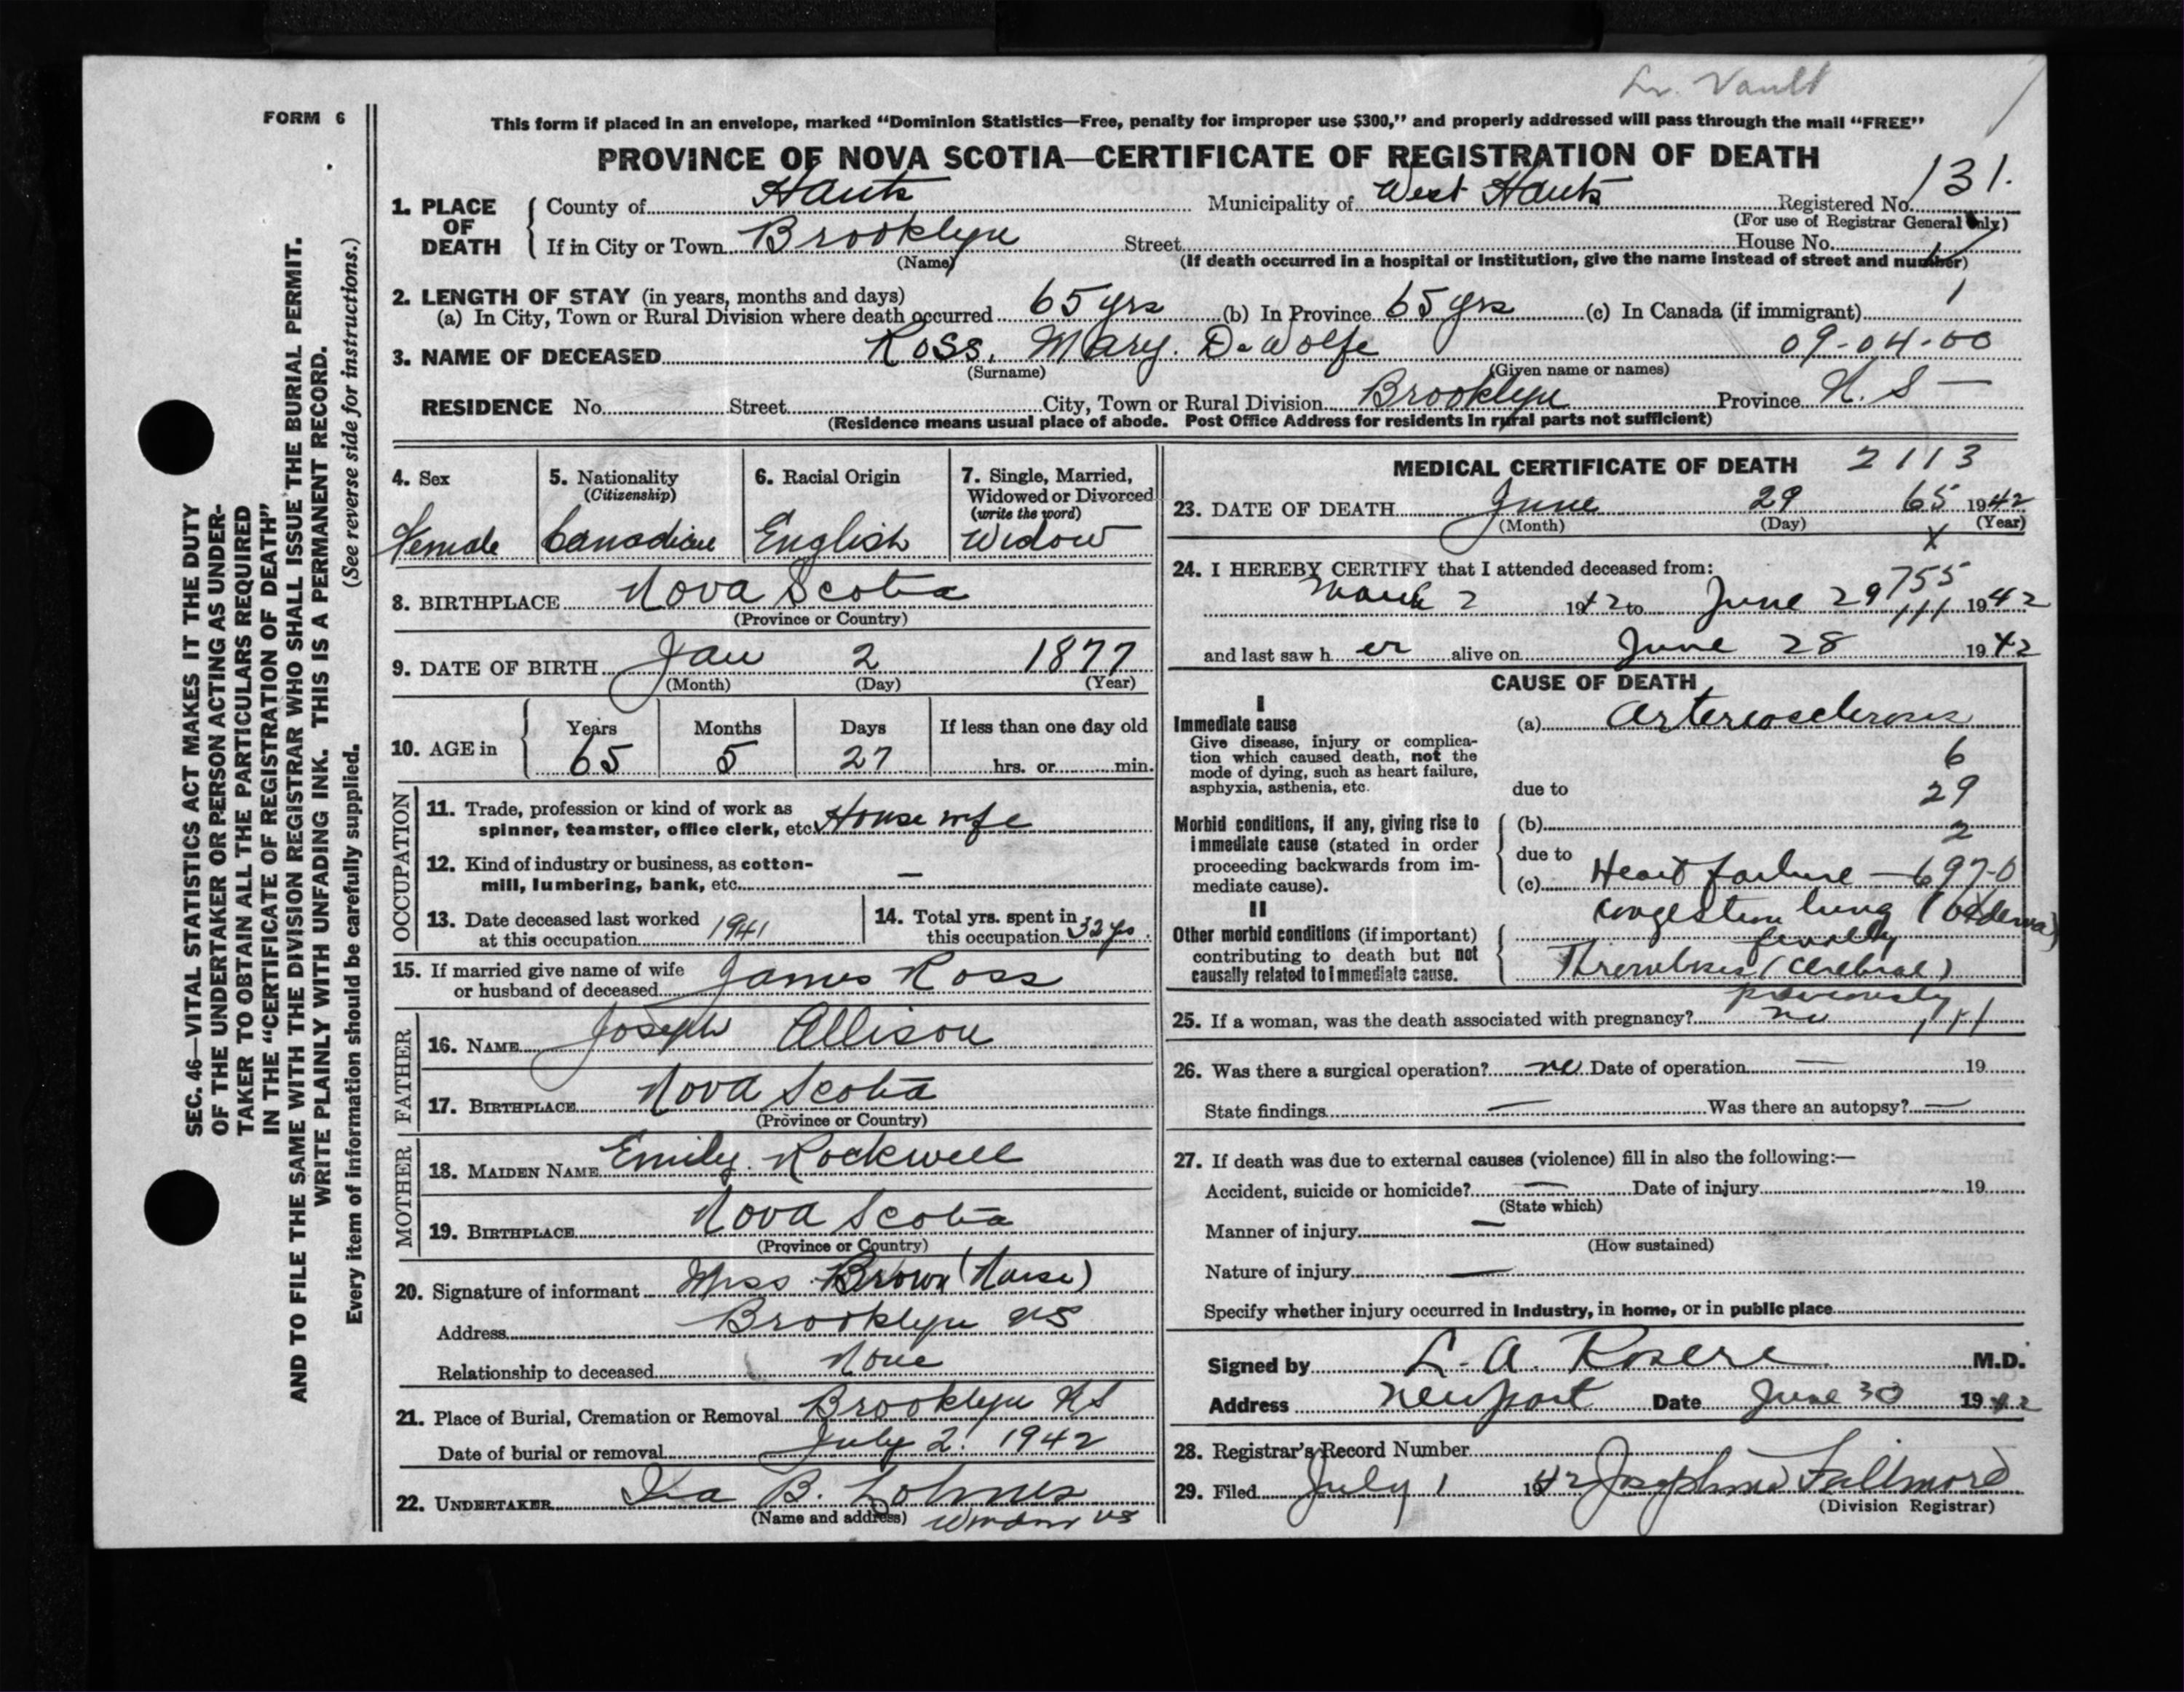 Lr. Vault
FORM 6
This form if placed in an envelope, marked "Dominion Statistics—Free, penalty for improper use $300," and properly addressed will pass through the mail "FREE"
PROVINCE OF NOVA SCOTIA—CERTIFICATE OF REGISTRATION OF DEATH
1. PLACE OF DEATH County of Hants Municipality of West Hants Registered No. 131.
(For use of Registrar General Only)
If in City or Town Brooklyn Street House No.
(Name) (If death occurred in a hospital or institution, give the name instead of street and number)
2. LENGTH OF STAY (in years, months and days)
(a) In City, Town or Rural Division where death occurred 65 yrs (b) In Province 65 yrs (c) In Canada (if immigrant) 1
3. NAME OF DECEASED Ross, Mary. DeWolfe 09-04-00
(Surname) (Given name or names)
RESIDENCE No. Street City, Town or Rural Division Brooklyn Province N.S —
(Residence means usual place of abode. Post Office Address for residents in rural parts not sufficient)
4. Sex
Female
5. Nationality
(Citizenship)
Canadian
6. Racial Origin
English
7. Single, Married,
Widowed or Divorced
(write the word)
Widow
8. BIRTHPLACE Nova Scotia
(Province or Country)
9. DATE OF BIRTH Jan 2 1877
(Month) (Day) (Year)
10. AGE in Years Months Days If less than one day old
65 5 27 hrs. or min.
OCCUPATION
11. Trade, profession or kind of work as
spinner, teamster, office clerk, etc. House wife
12. Kind of industry or business, as cotton-
mill, lumbering, bank, etc. —
13. Date deceased last worked
at this occupation 1941
14. Total yrs. spent in
this occupation 32 yrs
15. If married give name of wife
or husband of deceased James Ross
FATHER
16. NAME Joseph Allison
17. BIRTHPLACE Nova Scotia
(Province or Country)
MOTHER
18. MAIDEN NAME Emily Rockwell
19. BIRTHPLACE Nova Scotia
(Province or Country)
20. Signature of informant Miss Brown (Nurse)
Address Brooklyn NS
Relationship to deceased None
21. Place of Burial, Cremation or Removal Brooklyn NS
Date of burial or removal July 2. 1942
22. UNDERTAKER Ira B. Lohnes
(Name and address) Windsor NS
MEDICAL CERTIFICATE OF DEATH 2113
23. DATE OF DEATH June 29 65 1942
(Month) (Day) (Year)
X
24. I HEREBY CERTIFY that I attended deceased from:
755
March 2 1942 to June 29 111 1942
and last saw h er alive on June 28 1942
CAUSE OF DEATH
I
Immediate cause (a) Arteriosclerosis
Give disease, injury or complica-
tion which caused death, not the
mode of dying, such as heart failure,
asphyxia, asthenia, etc.
6
due to 29
Morbid conditions, if any, giving rise to
immediate cause (stated in order
proceeding backwards from im-
mediate cause).
(b) 2
due to
(c) Heart failure — 697-0
II
Congestion lung (oedema)
finally
Other morbid conditions (if important)
contributing to death but not
causally related to immediate cause.
Thrombosis (Cerebral)
previously
25. If a woman, was the death associated with pregnancy? no 111
26. Was there a surgical operation? no Date of operation — 19
State findings — Was there an autopsy? —
27. If death was due to external causes (violence) fill in also the following:—
Accident, suicide or homicide? — Date of injury 19
(State which)
Manner of injury —
(How sustained)
Nature of injury —
Specify whether injury occurred in industry, in home, or in public place
Signed by L. A. M.D.
Address Newport Date June 30 1942
28. Registrar's Record Number
29. Filed July 1 1942 Josephine Fillmore
(Division Registrar)
SEC. 46—VITAL STATISTICS ACT MAKES IT THE DUTY
OF THE UNDERTAKER OR PERSON ACTING AS UNDER-
TAKER TO OBTAIN ALL THE PARTICULARS REQUIRED
IN THE "CERTIFICATE OF REGISTRATION OF DEATH"
AND TO FILE THE SAME WITH THE DIVISION REGISTRAR WHO SHALL ISSUE THE BURIAL PERMIT.
WRITE PLAINLY WITH UNFADING INK. THIS IS A PERMANENT RECORD.
Every item of information should be carefully supplied. (See reverse side for instructions.)